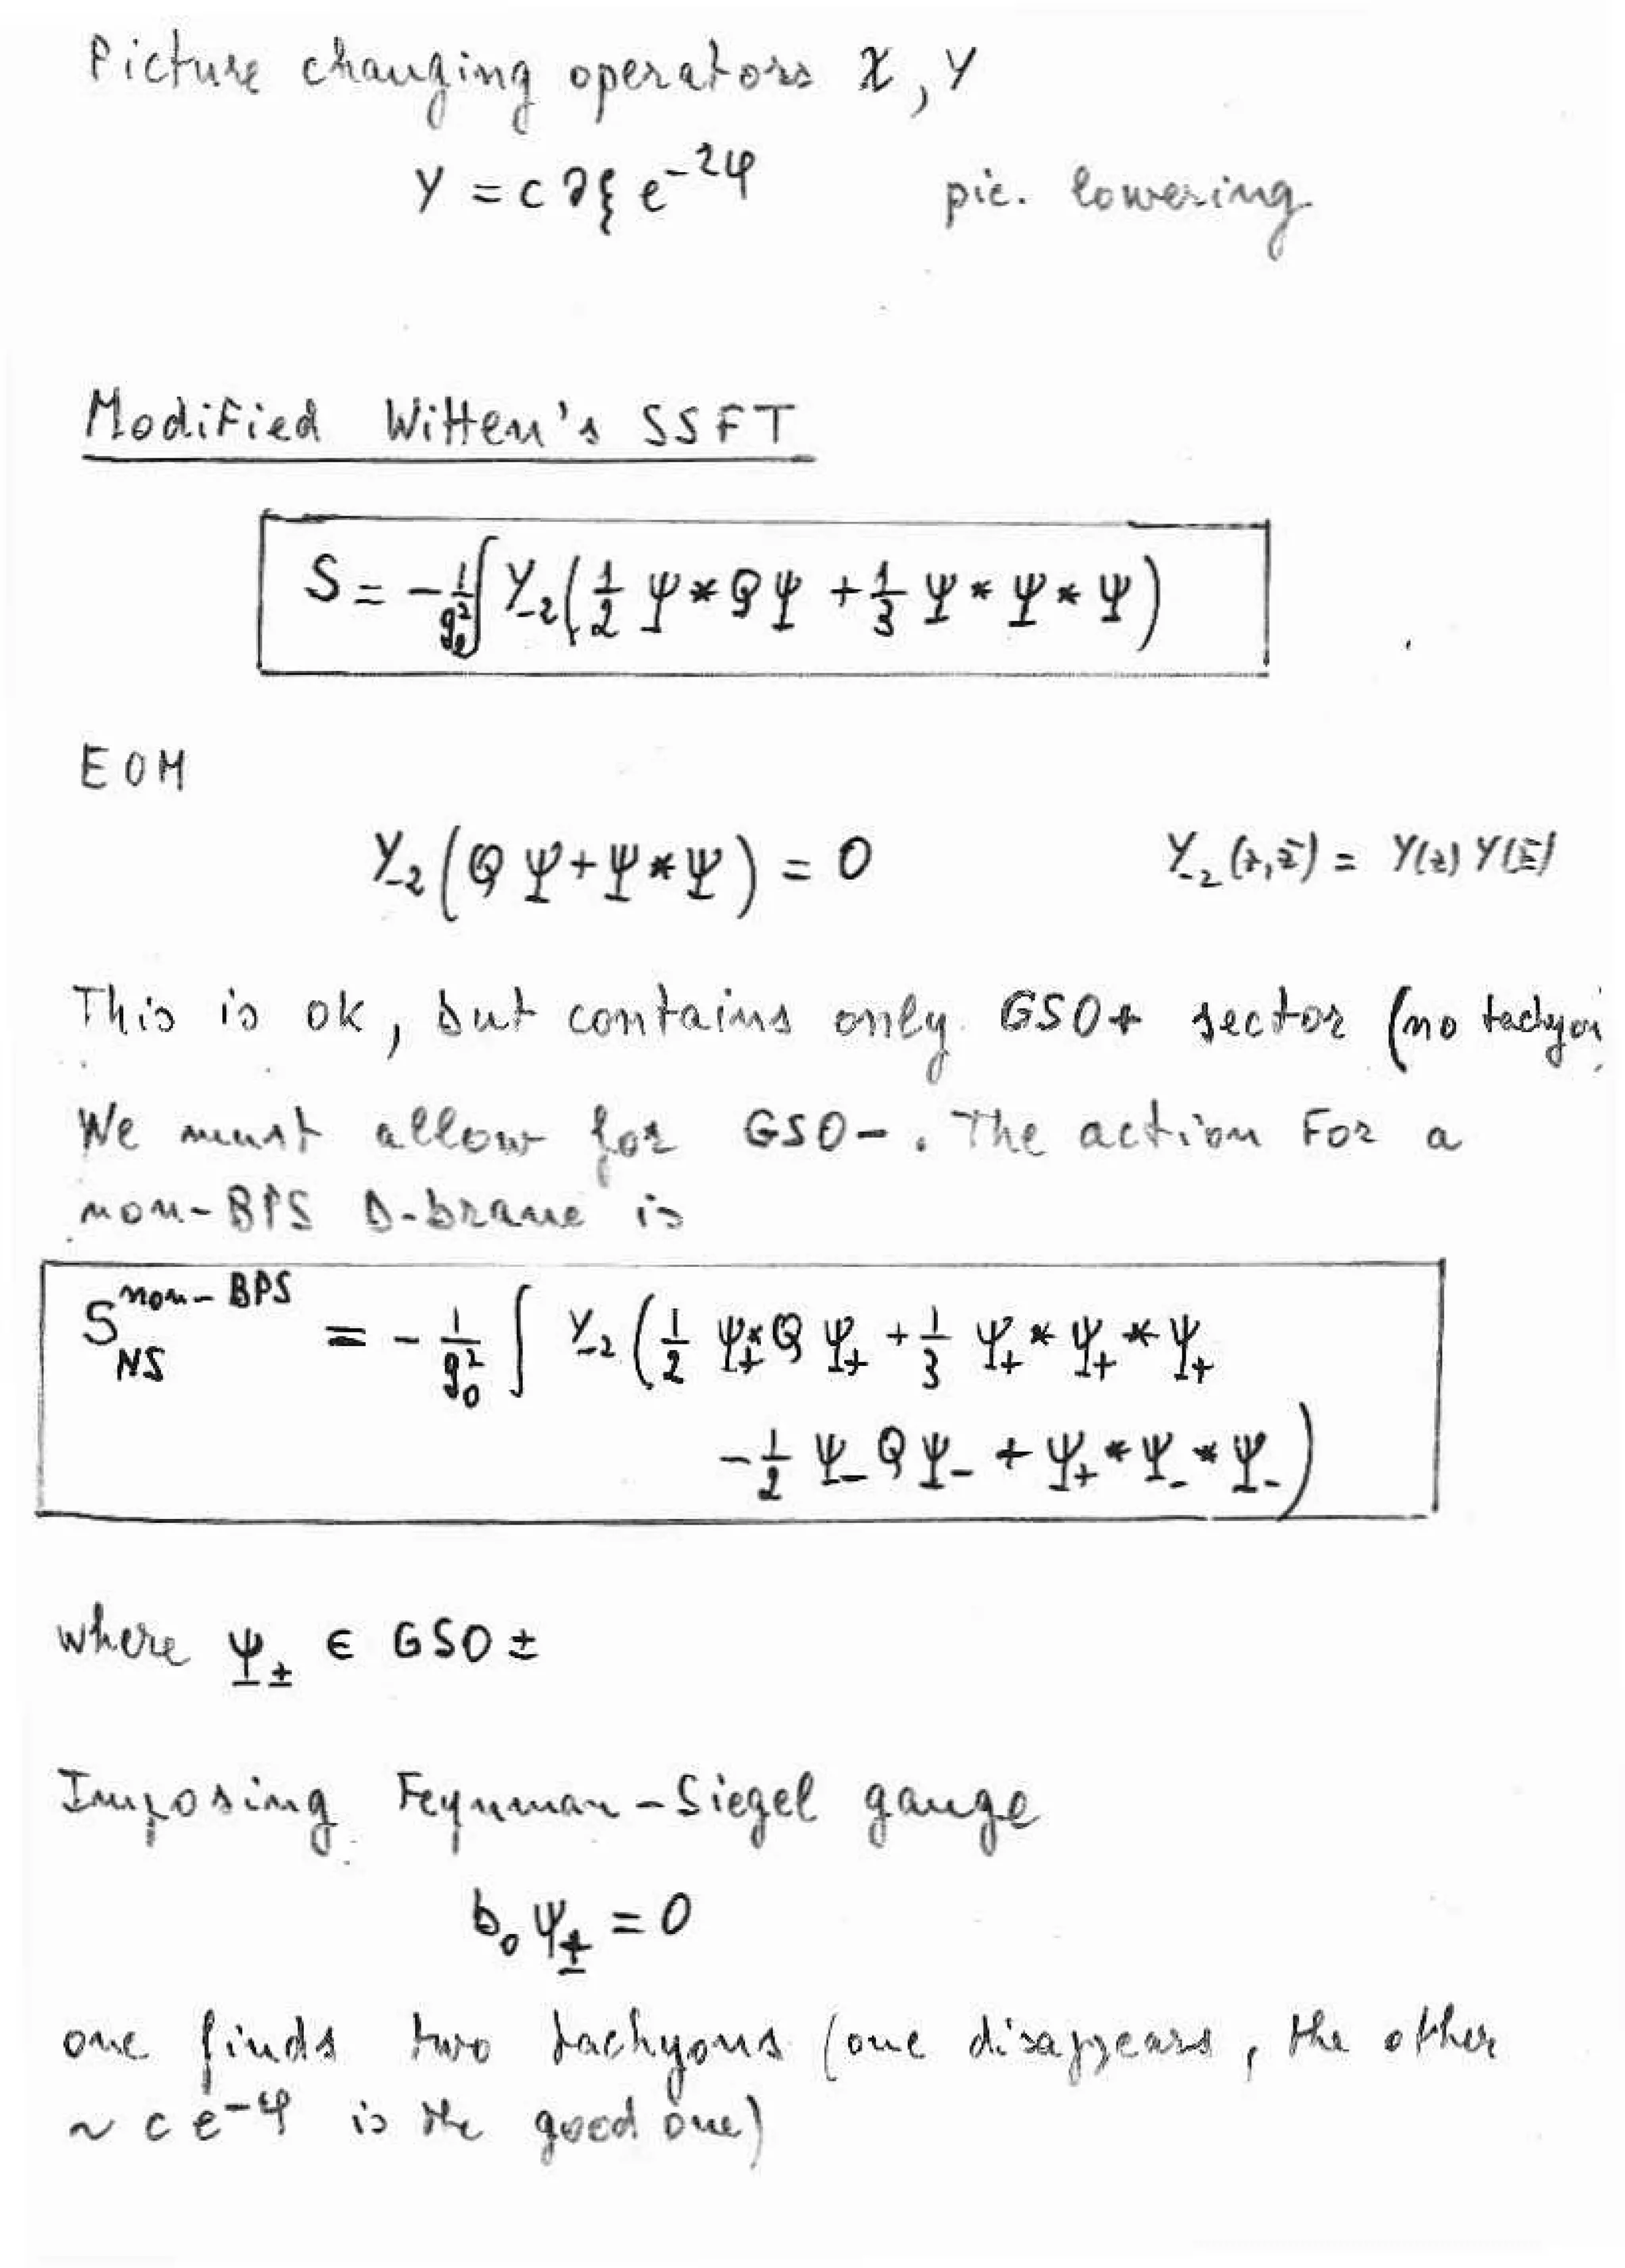 Picture changing operators 𝒳, Y
Y = c∂ξ e^{-2φ}    pic. lowering
Modified Witten's SSFT
S = -1/g_0^2 ∫ Y_{-2} ( 1/2 Ψ * Q Ψ + 1/3 Ψ * Ψ * Ψ )
EOM
Y_{-2} ( Q Ψ + Ψ * Ψ ) = 0    Y_{-2}(z, z̄) = Y(z) Y(z̄)
This is ok, but contains only GSO+ sector (no tachyon
We must allow for GSO-. The action for a
non-BPS D-brane is
S_{NS}^{non-BPS} = - 1/g_0^2 ∫ Y_{-2} ( 1/2 Ψ_+ * Q Ψ_+ + 1/3 Ψ_+ * Ψ_+ * Ψ_+
- 1/2 Ψ_- Q Ψ_- + Ψ_+ * Ψ_- * Ψ_- )
where Ψ_± ∈ GSO ±
Imposing Feynman-Siegel gauge
b_0 Ψ_± = 0
one finds two tachyons (one disappears, the other
~ c e^{-φ} is the good one)